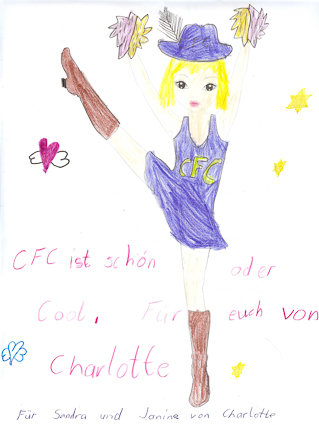 CFC
CFC ist schön oder
Cool, Für euch von
Charlotte
Für Sandra und Janine von Charlotte